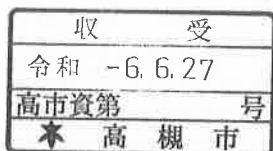 収 受
令和 -6. 6. 27
高市資第 号
高槻市